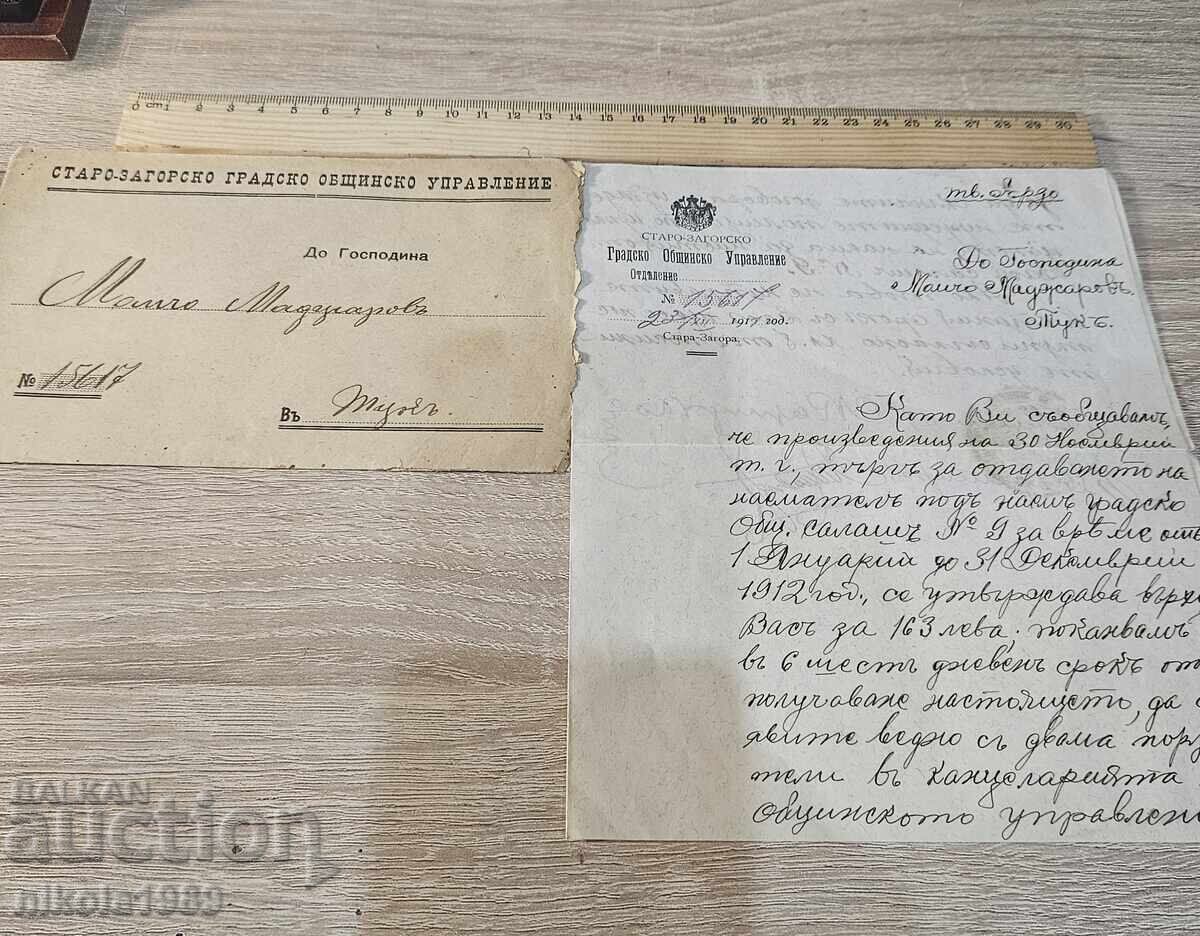 0 cm 1 2 3 4 5 6 7 8 9 10 11 12 13 14 15 16 17 18 19 20 21 22 23 24 25 26 27 28 29 30
СТАРО-ЗАГОРСКО ГРАДСКО ОБЩИНСКО УПРАВЛЕНИЕ
До Господина
Момчо Маджаровъ
№ 15617
Въ Тукъ.
тв. Ардо
СТАРО-ЗАГОРСКО
Градско Общинско Управление
Отдѣление
№ 15617
23/XII 1911 год.
Стара-Загора,
До Господина
Момчо Маджаровъ.
Тукъ.
Като Ви съобщавамъ,
че произведения на 30 Ноемврий
т. г., търгъ за отдаването на
наемателъ подъ наемъ градско
Общ. салашъ № 9 за врѣме отъ
1 Януарий до 31 Декемврий
1912 год., се утвърждава върху
Васъ за 163 лева; поканвамъ
въ 6 шестъ дневенъ срокъ от
получаване настоящето, да с
явите ведно съ двама поръ
тели въ канцеларията
общинското управлени
BALKAN
auction
nikola1989